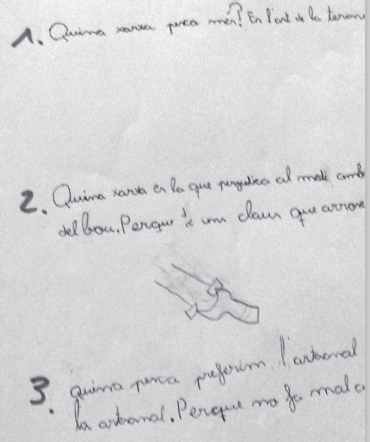 1. Quina xarxa pesca més? En l'art de la
2. Quina xarxa és la que perjudica al medi amb
del bou. Perque té uns claus que arros
3. quina pesca preferim l'artesanal
la artesanal. Perque no fa mal a